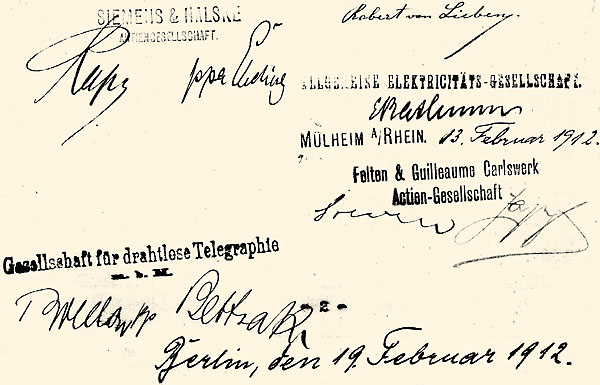 SIEMENS & HALSKE
AKTIENGESELLSCHAFT.
Robert von Lieben.
ppa
ALLGEMEINE ELEKTRICITÄTS-GESELLSCHAFT.
MÜLHEIM A/RHEIN. 13. Februar 1912.
Felten & Guilleaume Carlswerk
Actien-Gesellschaft
Gesellschaft für drahtlose Telegraphie
m. b. H.
- 2 -
Berlin, den 19. Februar 1912.